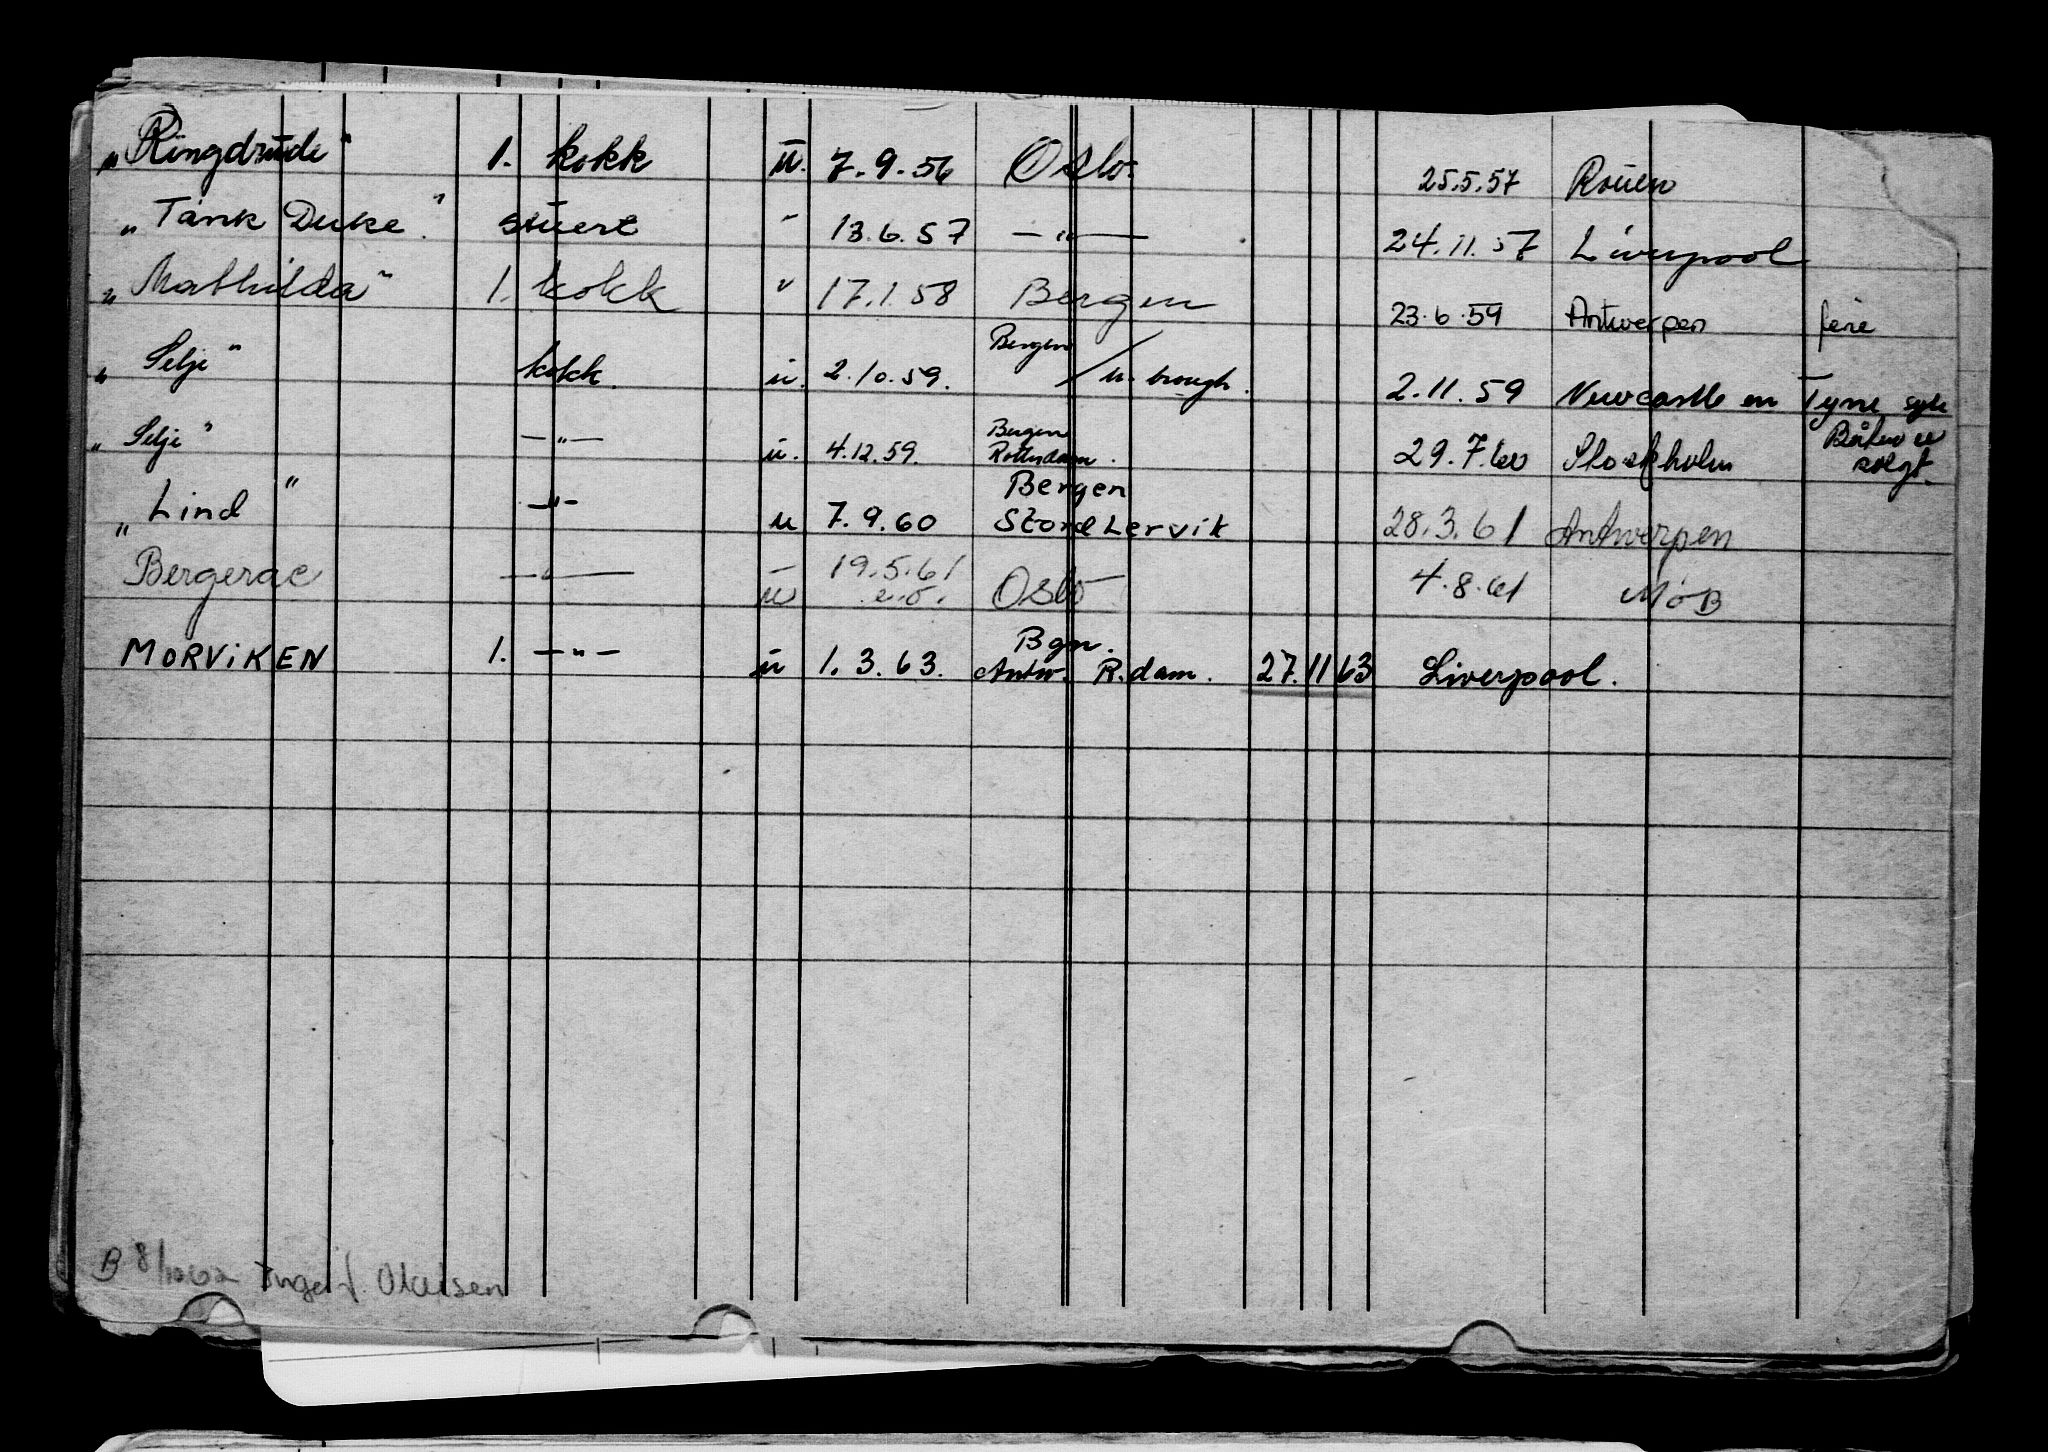 „Ringdrude" 1. kokk u. 7.9.56 Oslo. 25.5.57 Rouen
„Tank Duke." stuert " 13.6.57 —"— 24.11.57 Liverpool
„Mathilda" 1. kokk " 17.1.58 Bergen 23.6.59 Antwerpen ferie
„Selje" kokk. u. 2.10.59. Bergen / M.brough. 2.11.59 Newcastle on Tyne syk
„Selje" —"— u. 4.12.59. Bergen Rotterdam. 29.7.60 Stockholm Båten er solgt.
„Lind" —"— u 7.9.60 Bergen Stord Lervik 28.3.61 Antwerpen
Bergerac —"— u 19.5.61 Oslo 4.8.61 MoB
MORVIKEN 1. —"— u 1.3.63. Bgn. Antw. R.dam. 27.11 63 Liverpool.
B 8/10 62